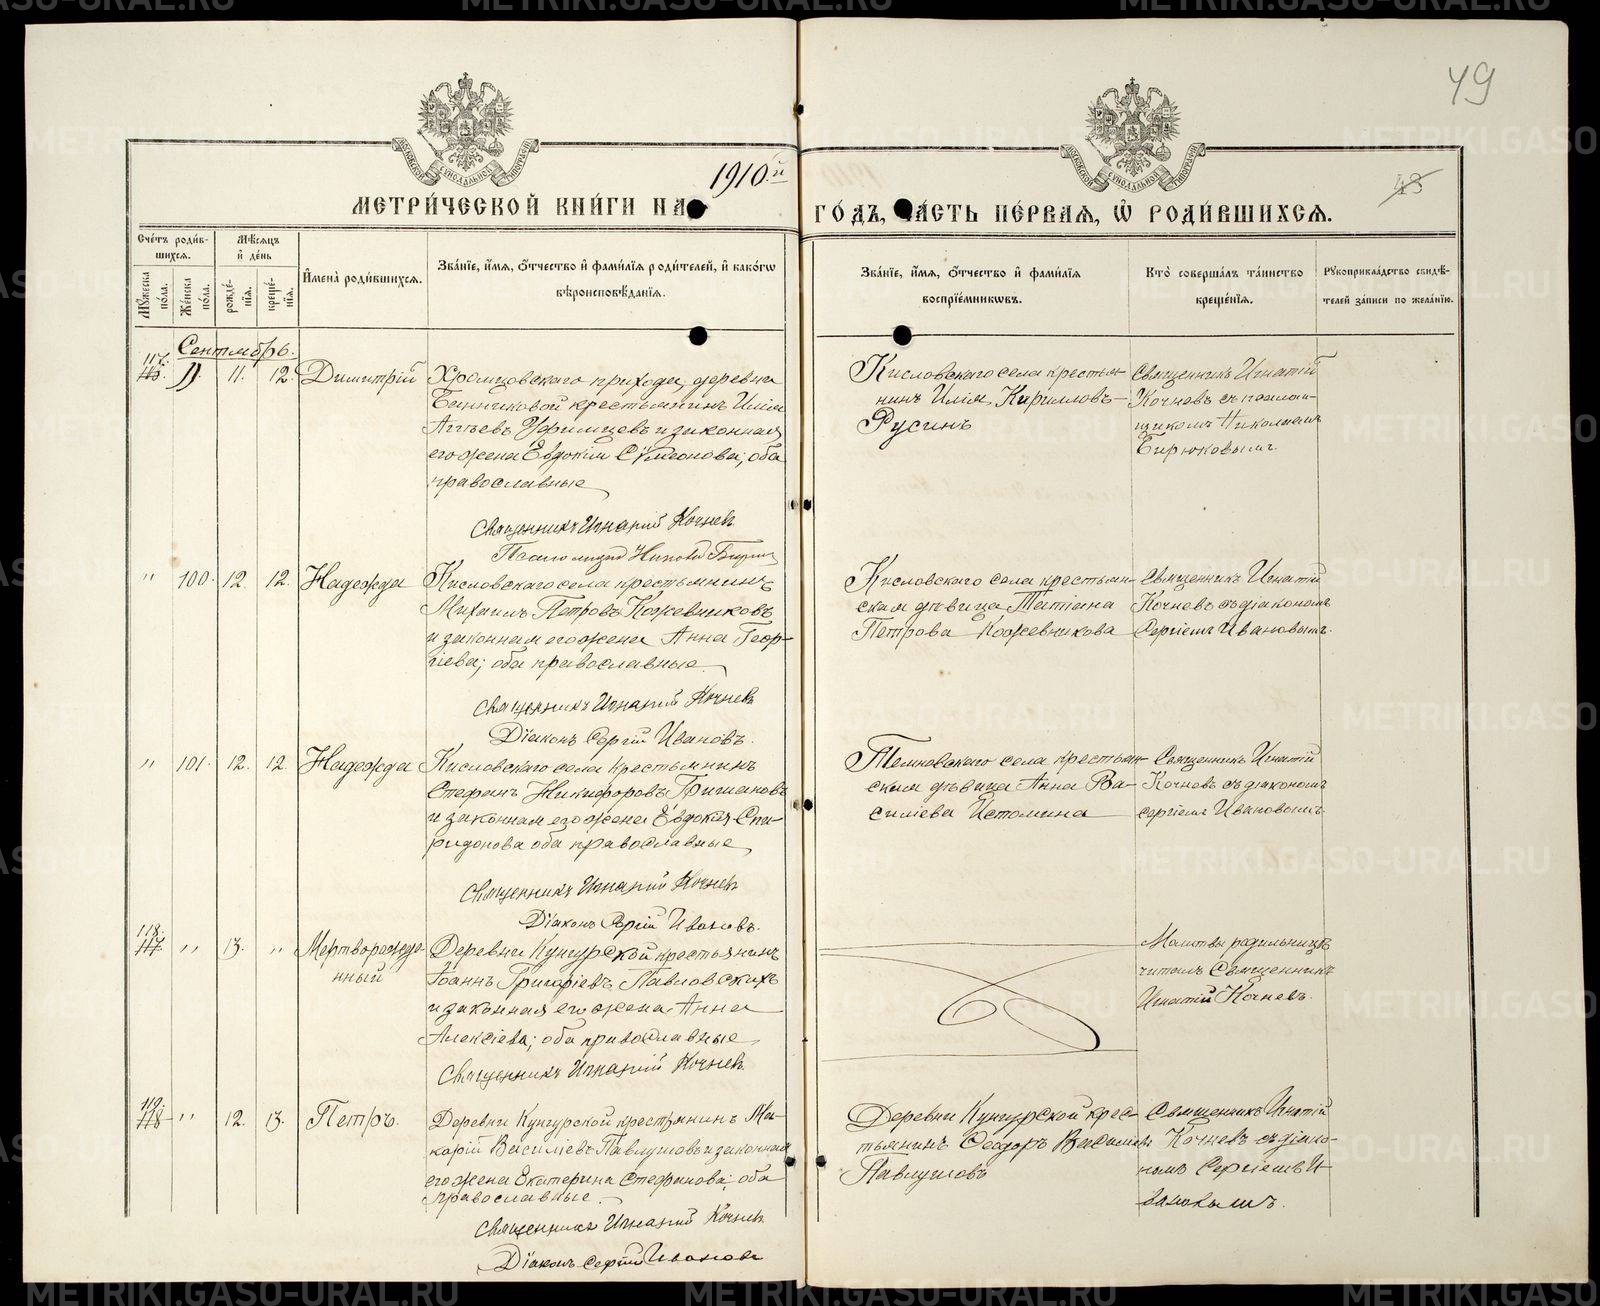 49
43
МОСКОВСКОЙ СѴНОДАЛЬНОЙ ТИПОГРАФІИ
МОСКОВСКОЙ СѴНОДАЛЬНОЙ ТИПОГРАФІИ
МЕТРИ́ЧЕСКОЙ КНИ́ГИ НА 1910й ГО́ДЪ, ЧА́СТЬ ПЕ́РВАЯ, Ѽ РОДИ́ВШИХСЯ.
Сче́тъ роди́в-
шихся.
Мѣ́сяцъ
и҆ де́нь
И҆мена̀ роди́вшихся.
Зва́нїе, и҆́мя, ѻ҆́тчество и҆ фами́лїя роди́телей, и҆ како́гѡ
вѣроисповѣ́данїя.
Зва́нїе, и҆́мя, ѻ҆́тчество и҆ фами́лїя
воспрїе́мникѡвъ.
Кто̀ соверша́лъ та́инство
креще́нїя.
Рꙋкоприкла́дство свидѣ́-
телей за́писи по жела́нїю.
Мꙋ́жеска
по́ла.
Же́нска
по́ла.
рожде́-
нїя.
креще́-
нїя.
Сентябрь.
117.
116. 11. 12. Димитрій
Хромцовскаго прихода, деревни
Банниковой крестьянинъ Илія
Аггѣевъ Уфимцевъ и законная
его жена Евдокія Сѵмеонова; оба
православные
Священникъ Игнатій Кочневъ
Псаломщ Никола Бирюк
Кисловскаго села крестья-
нинъ Илія Кирилловъ
Русинъ
Священникъ Игнатій
Кочневъ съ псалом-
щикомъ Николаемъ
Бирюковымъ.
" 100. 12. 12. Надежда
Кисловскаго села крестьянинъ
Михаилъ Петровъ Кожевниковъ
и законная его жена Анна Геор-
гіева; оба православные
Священникъ Игнатій Кочневъ
Діаконъ Сергій Ивановъ.
Кисловскаго села крестьян-
ская дѣвица Татіана
Петрова Кожевникова
Священникъ Игнатій
Кочневъ съ діакономъ
Сергіемъ Ивановымъ.
" 101. 12. 12. Надежда
Кисловскаго села крестьянинъ
Стефанъ Никифоровъ Гришановъ
и законная его жена Евдокія Спи-
ридонова оба православные
Священникъ Игнатій Кочневъ
Діаконъ Сергій Ивановъ.
Темновскаго села крестьян-
ская дѣвица Анна Ва-
силіева Истомина
Священникъ Игнатій
Кочневъ съ діакономъ
Сергіемъ Ивановымъ.
118.
117. " 13. " Мертворожде-
нный
Деревни Кунгурской крестьянинъ
Іоаннъ Григоріевъ Павловскихъ
и законная его жена Анна
Алексіева; оба православные
Священникъ Игнатій Кочневъ.
Молитвы родильницѣ
читалъ Священникъ
Игнатій Кочневъ.
119.
118 " 12. 13. Петръ.
Деревни Кунгурской крестьянинъ Ма-
карій Василіевъ Павлушовъ и законная
его жена Екатерина Стефанова; оба
православные.
Священникъ Игнатій Кочневъ
Діаконъ Сергій Ивановъ
Деревни Кунгурской крес-
тьянинъ Ѳеодоръ Василіевъ
Павлушовъ
Священникъ Игнатій
Кочневъ съ діако-
номъ Сергіемъ И-
вановымъ.
METRIKI.GASO-URAL.RU